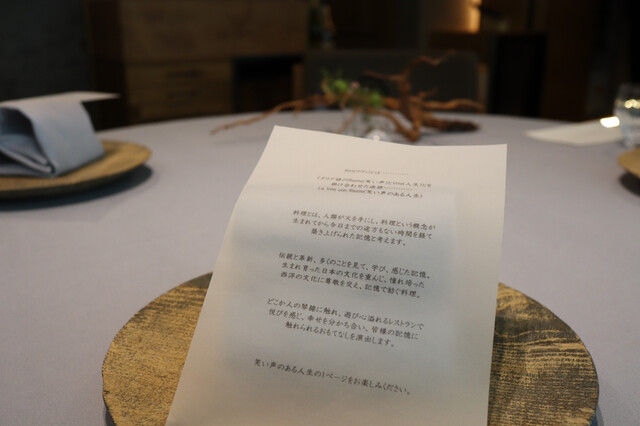 料理とは、人類が火を手にし、料理という概念が
生まれてから今日までの途方もない時間を経て
築き上げられた記憶と考えます。
伝統と革新、多くのことを見て、学び、感じた記憶。
生まれ育った日本の文化を重んじ、憧れ培った
西洋の文化に尊敬を交え、記憶で紡ぐ料理。
どこか人の琴線に触れ、遊び心溢れるレストランで
悦びを感じ、幸せを分かち合い。皆様の記憶に
触れられるおもてなしを演出します。
笑い声のある人生の1ページをお楽しみください。